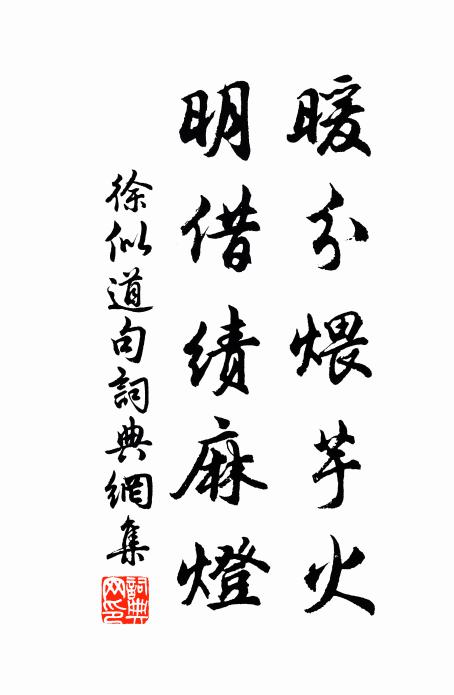 暖分煨芋火
明借績麻燈
徐似道句詞典網集
詞典網印